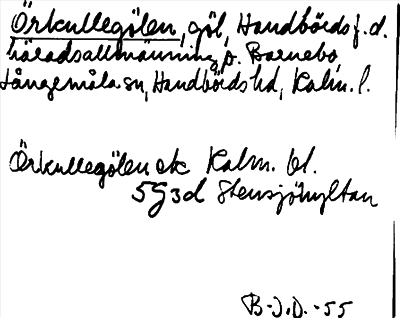 Örkullegölen, göl, Handbörds f.d.
häradsallmänning, p. Barnebo,
Långemåla sn, Handbörds hd, Kalm. l.
Örkullegölen ek Kalm. bl.
5G3d Stensjöhyltan
B-J.D. -55